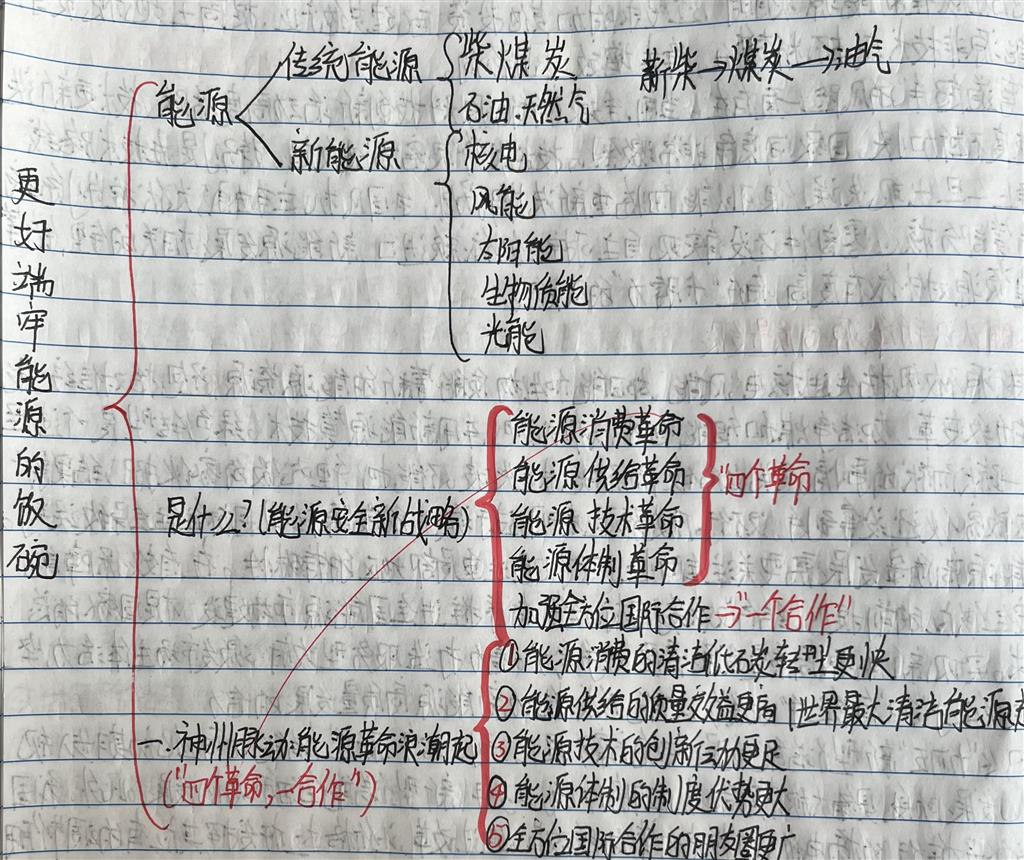 更好端牢能源的饭碗
能源
传统能源
柴煤炭
石油.天然气
薪柴→煤炭→油气
新能源
核电
风能
太阳能
生物质能
光能
是什么?(能源安全新战略)
能源消费革命
能源供给革命
能源技术革命
能源体制革命
"四个革命
加强全方位国际合作→"一个合作"
一.神州脉动:能源革命浪潮起
("四个革命,一合作")
①能源消费的清洁低碳转型更快
②能源供给的质量效益更高(世界最大清洁能源
③能源技术的创新动力更足
④能源体制的制度优势更大
⑤全方位国际合作的朋友圈更广